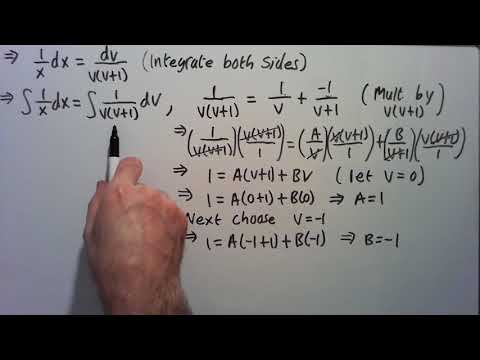 ⇒ 1/x dx = dv/v(v+1) (Integrate both sides)
⇒ ∫ 1/x dx = ∫ 1/v(v+1) dv , 1/v(v+1) = 1/v + -1/v+1 (Mult by v(v+1))
⇒ (1/v(v+1))(v(v+1)/1) = (A/v)(v(v+1)/1) + (B/v+1)(v(v+1)/1)
⇒ 1 = A(v+1) + BV (let V=0)
⇒ 1 = A(0+1) + B(0) ⇒ A = 1
Next choose V=-1
⇒ 1 = A(-1+1) + B(-1) ⇒ B = -1